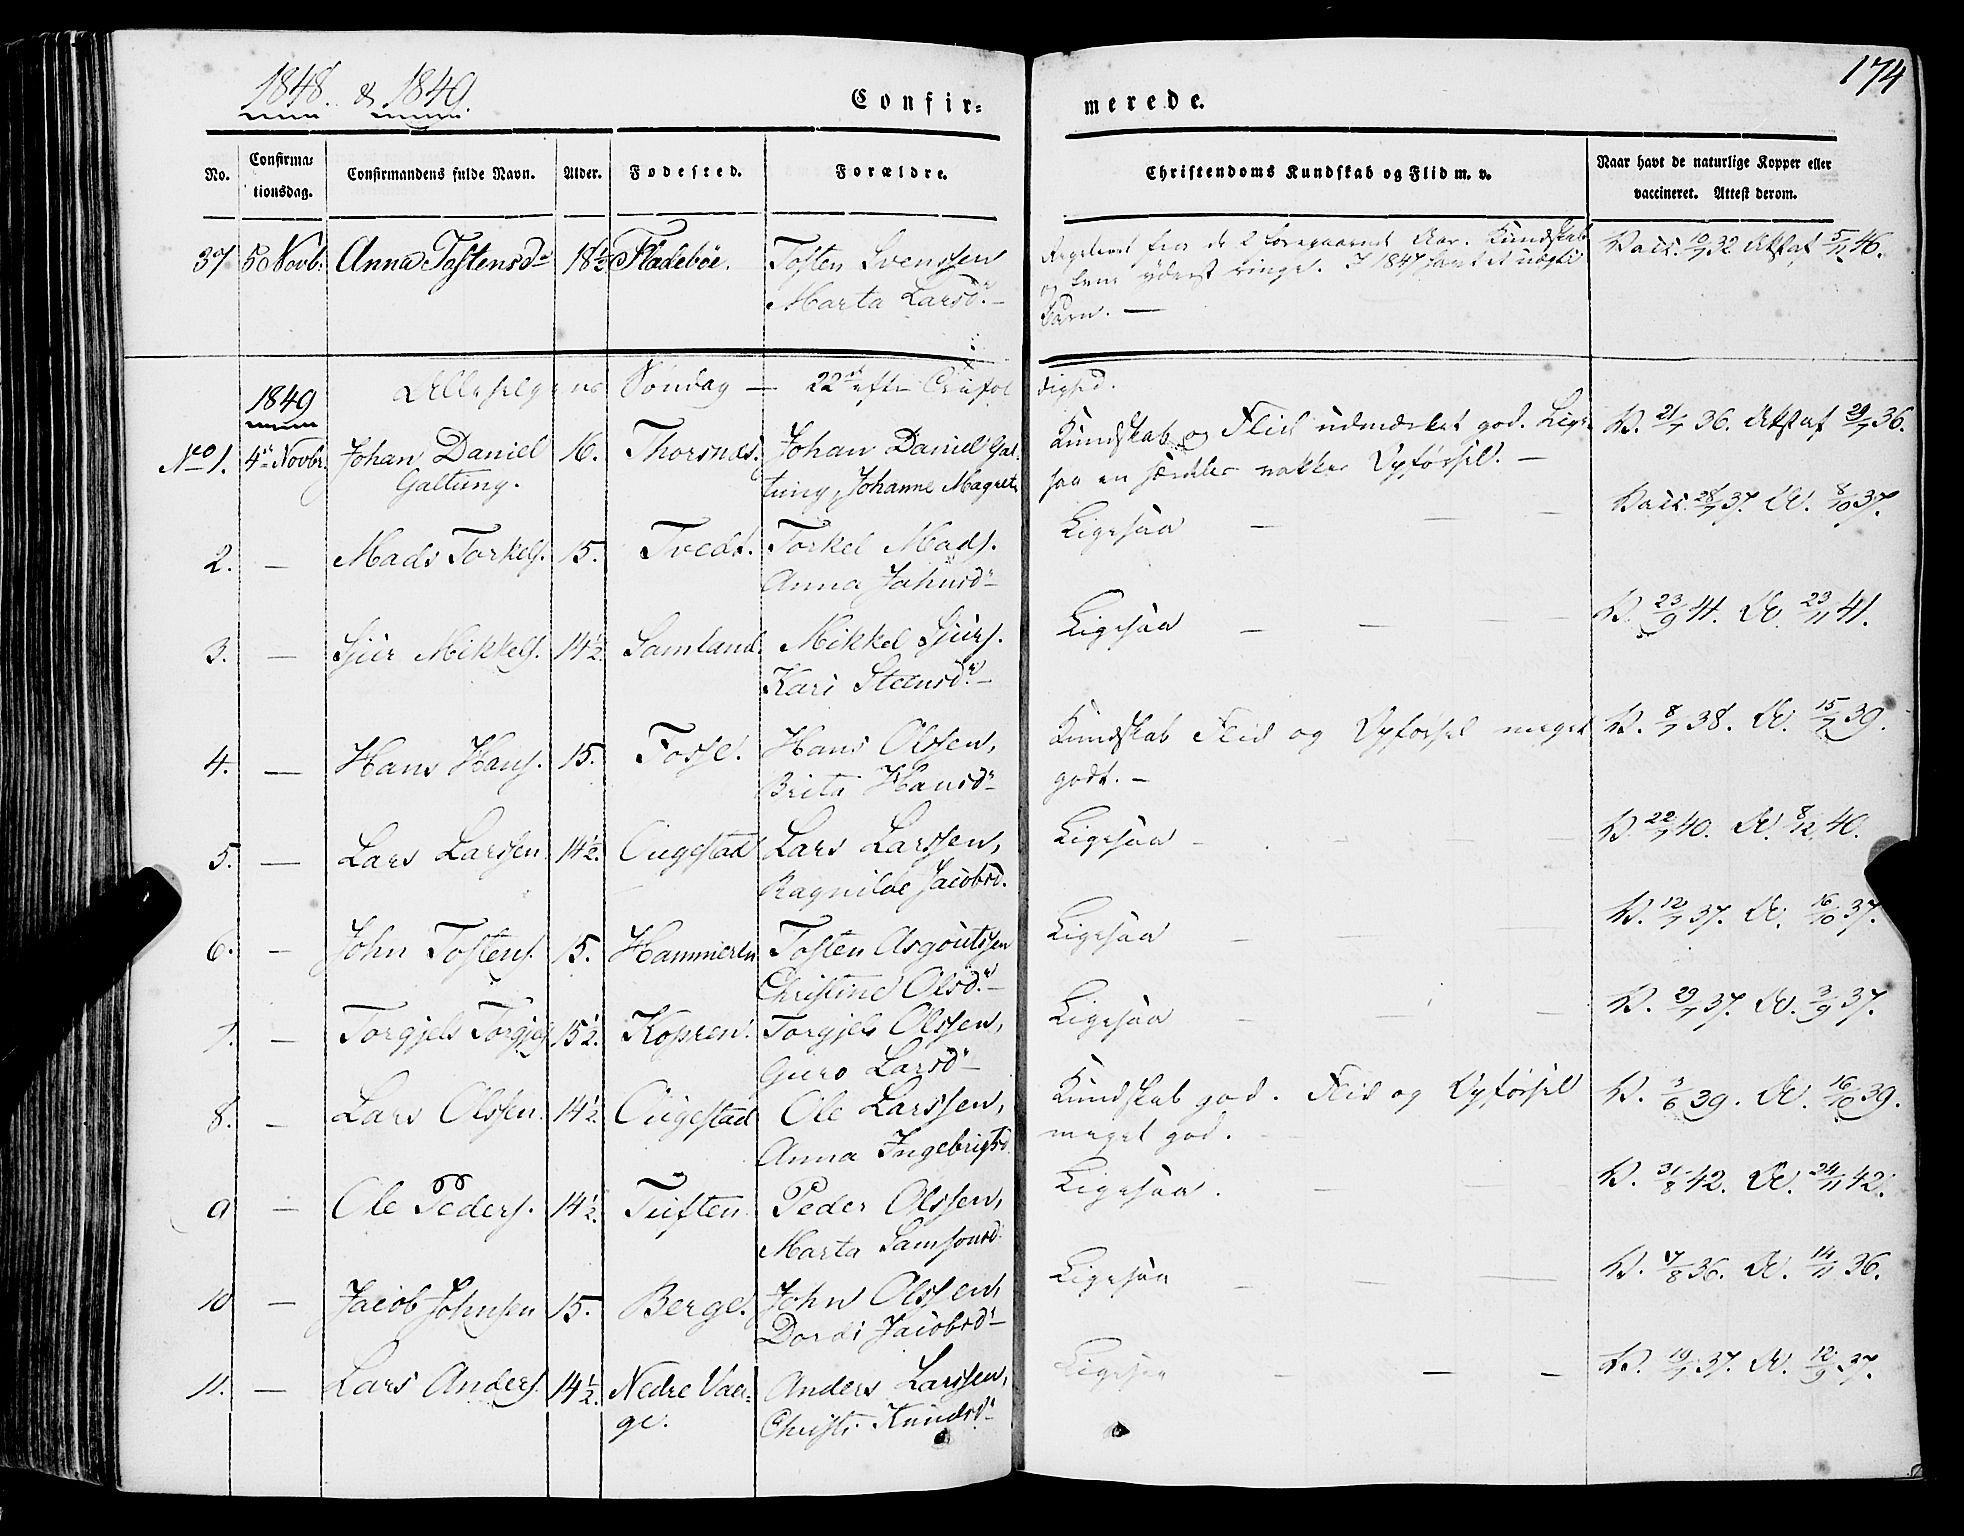 174
1848. & 1849.
Confir=
merede.
No.
Confirma=
tionsdag.
Confirmandens fulde Navn.
Alder.
Fødested.
Forældre.
Christendoms Kundskab og Flid m. v.
Naar havt de naturlige Kopper eller
vaccineret. Attest derom.
37 5 Novb: Anna Tostensd. 18½ Fladebøe. Tosten Svenssen
Marta Larsd.
fra de 2 foregaaende Aar. Kundskab
og yderst ringe. I 1847 et uægte
Barn. —
Vacc. 10/7 32 Attst af 5/11 46.
1849 Allehelgens Søndag — 22de efter Trefol
dighed.
No 1. 4de Novbr. Johan Daniel 16. Thorsnæs. Johan Daniel Gal=
Galtung. tung, Johanne Magrete
Kundskab og Flid udmærket god. Lige
saa en særdeles vakker Opførsel. —
V. 21/7 36. Attst af 29/7 36.
2. — Mads Torkels. 15. Tvedt. Torkel Mads.
Anna Johnsd.
Ligesaa — — —
Vacc. 28/7 37. A. 8/10 37.
3. — Sjur Mikkels. 14½. Samland. Mikkel Sjurs.
Kari Steensd.
Ligesaa — — — —
V. 23/9 41. A. 23/11 41.
4. — Hans Hans. 15. Fosse. Hans Olssen,
Brita Hansd.
Kundskab Flid og Opførsel meget
godt. —
V. 8/7 38. A. 15/7 39.
5. — Lars Larssen 14½. Augestad Lars Larssen,
Ragnilde Jacobsd.
Ligesaa — — —
V. 22/7 40. A. 8/12 40.
6. — John Tostens. 15. Hammeren Tosten Asgoutssen
Christine Olsd.
Ligesaa — — —
V. 12/7 37. A. 16/10 37.
7. — Torgjels Torgjels 15½. Kopren. Torgjels Olssen,
Guro Larsd.
Ligesaa — — —
V. 29/7 37. A. 3/9 37.
8. — Lars Olssen. 14½ Augestad Ole Larssen,
Anna Ingebrigtsd.
Kundskab god. Flid og Opførsel
meget god.
V. 3/6 39. A. 16/10 39.
9 — Ole Peders. 14½. Tuften Peder Olssen,
Marta Samsonsd.
Ligesaa. — — —
V. 31/8 42. A. 24/11 42.
10 — Jacob Johnsen 15. Berge. John Olssen,
Dordi Jacobsd.
Ligesaa — — —
V. 17/8 36. A. 14/11 36.
11. — Lars Anders. 14½. Nedre Vaa= Anders Larssen,
ge. Christi Knudsd.
Ligesaa — — —
V. 19/7 37. A. 12/9 37.